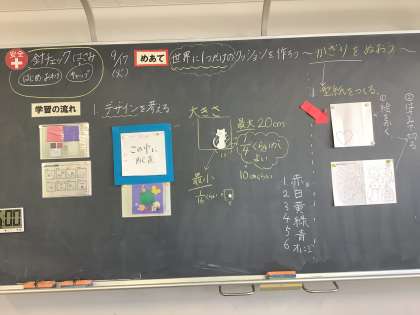 安全
針チェック はさみ
はじめ・おわり
キャップ
9/17
(火)
めあて
世界に1つだけのクッションを作ろう
〜かざりをぬおう〜
学習の流れ
1 デザインを考える
この中に
かく
大きさ
最大20cm
1/4くらいが
よい
10cmくらい
最小
1/16くらい
型紙をつくる
1 赤
2 白
3 黄
4 緑
5 青
6 オレンジ
①絵をかく